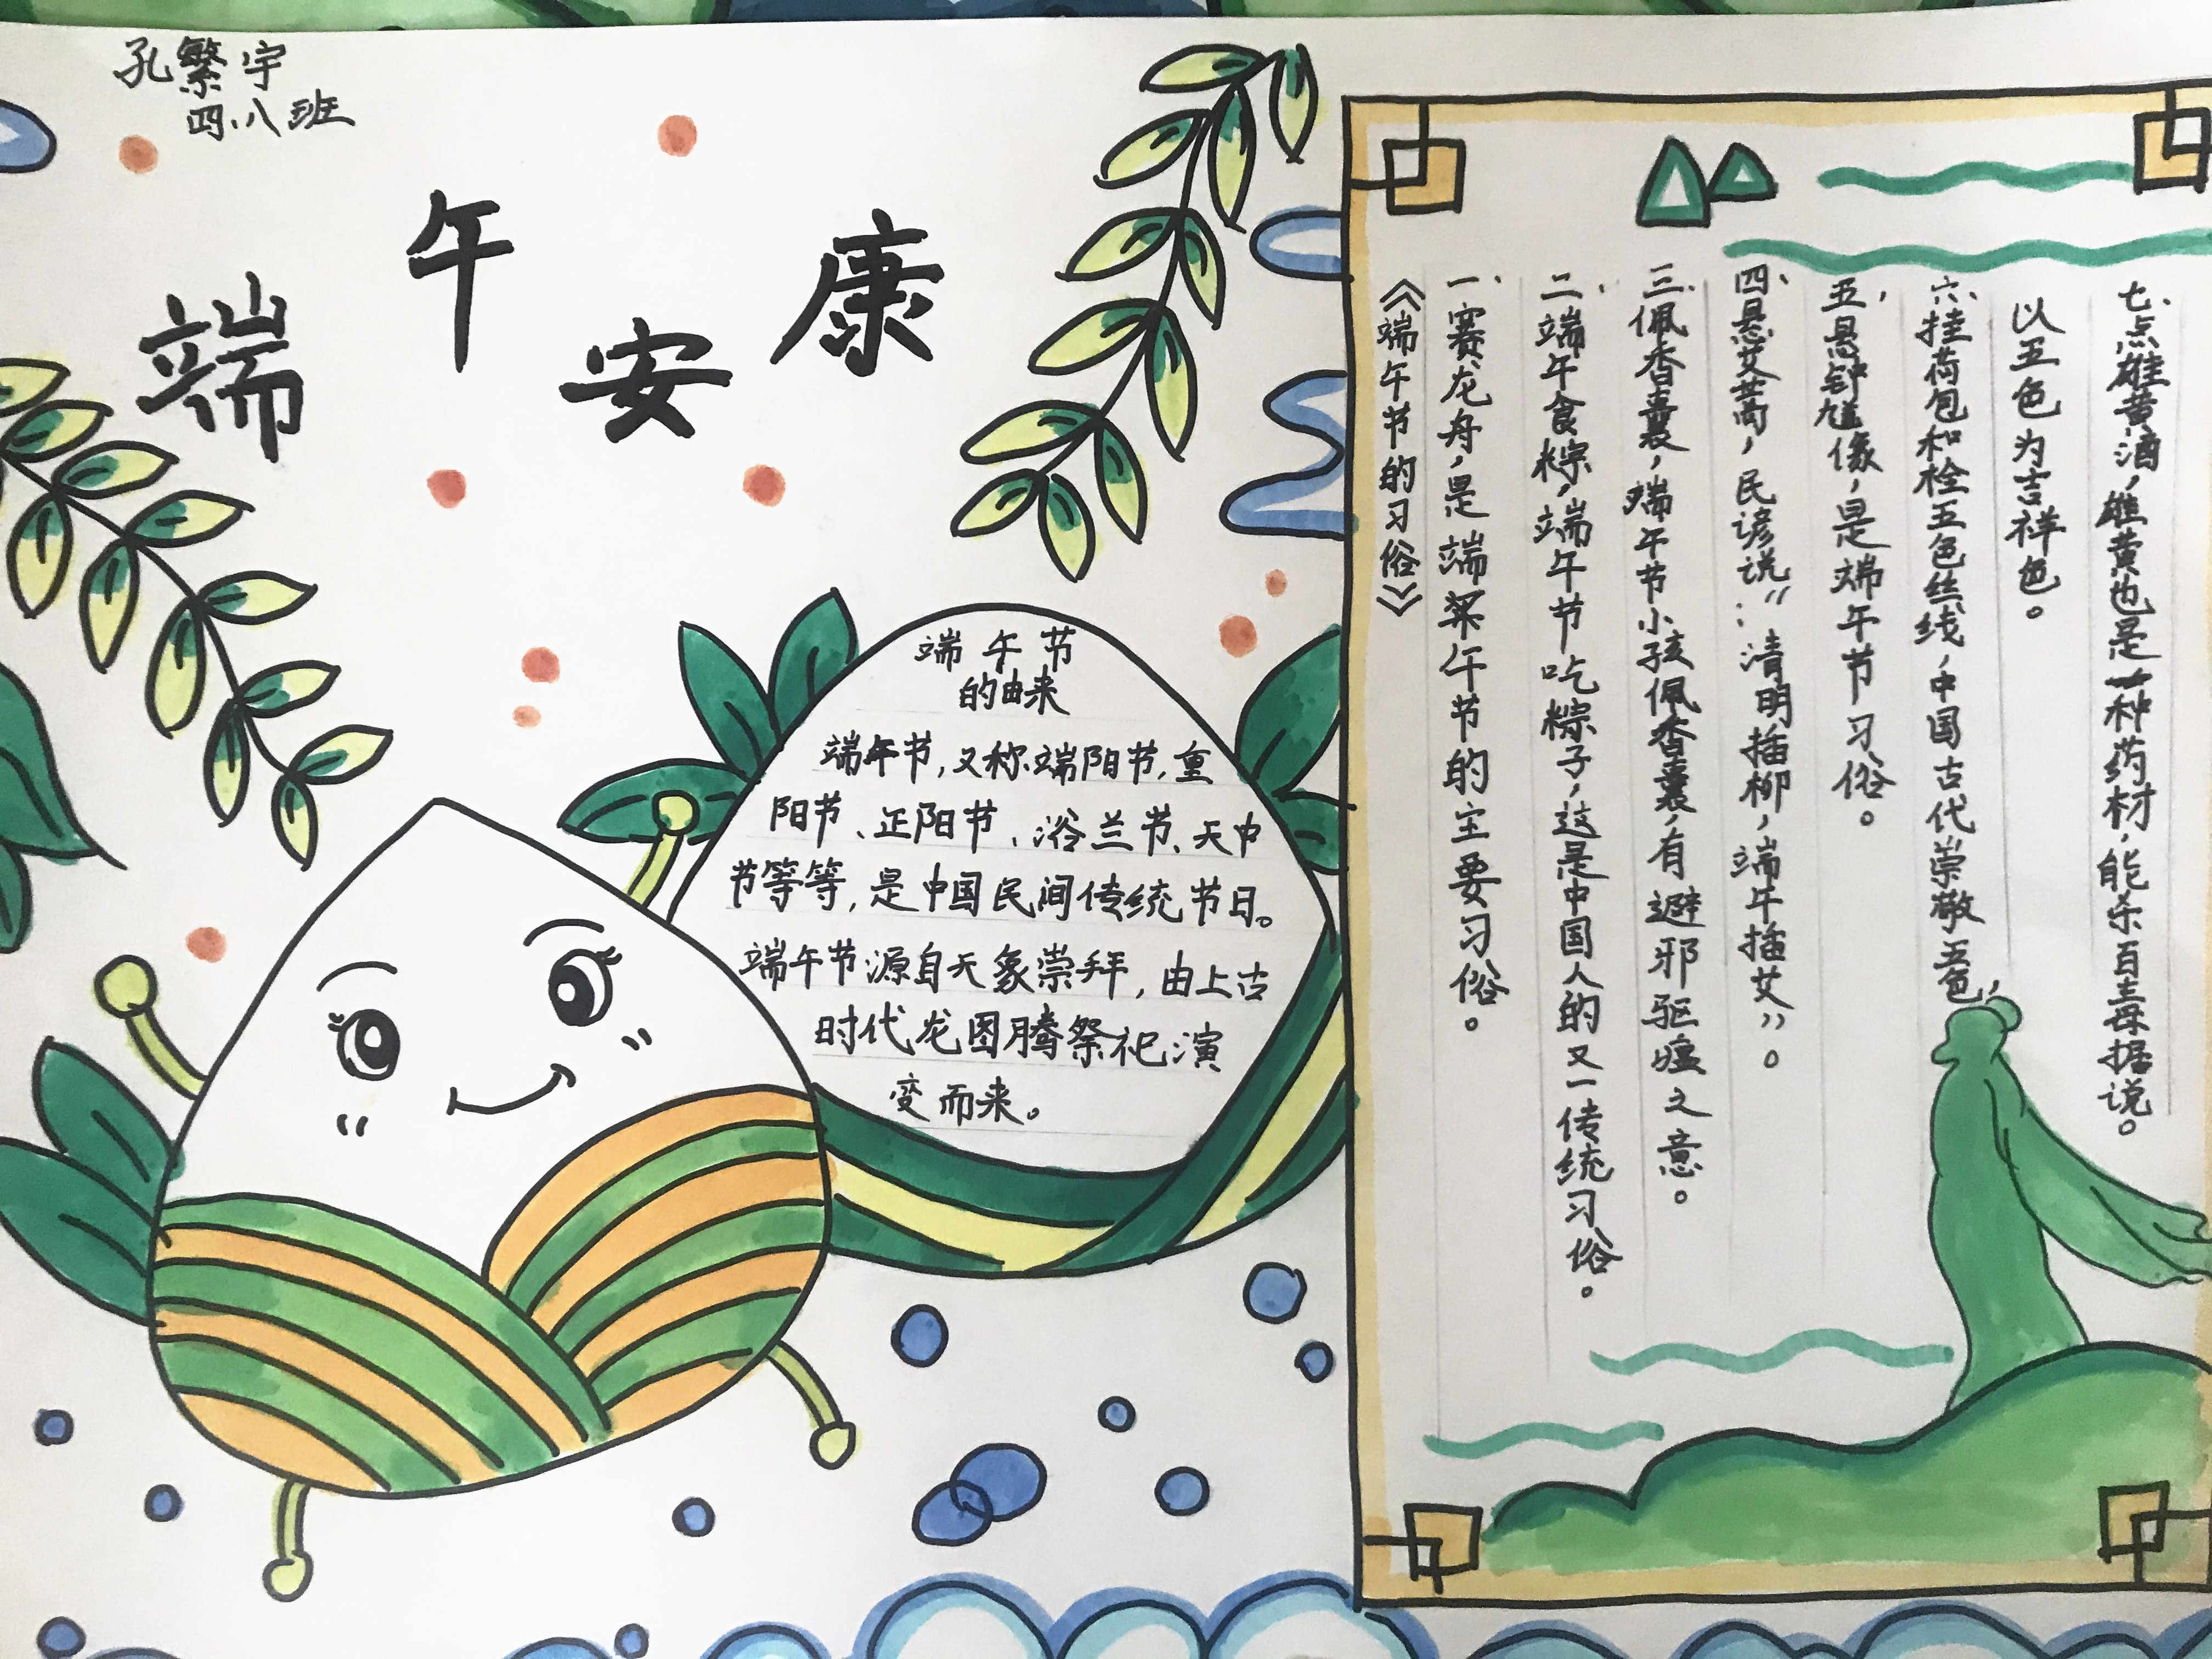 孔繁宇
四.八班
端午安康
端午节
的由来
端午节,又称端阳节,重
阳节、正阳节、浴兰节、天中
节等等,是中国民间传统节日。
端午节源自天象崇拜,由上古
时代龙图腾祭祀演
变而来。
《端午节的习俗》
一、赛龙舟,是端午节的主要习俗。
二、端午食粽,端午节吃粽子,这是中国人的又一传统习俗。
三、佩香囊,端午节小孩佩香囊,有避邪驱瘟之意。
四、悬艾蒿,民谚说:“清明插柳,端午插艾”。
五、悬钟馗像,是端午节习俗。
六、挂荷包和栓五色丝线,中国古代崇敬五色,
以五色为吉祥色。
七、点雄黄酒,雄黄也是一种药材,能杀百毒据说。